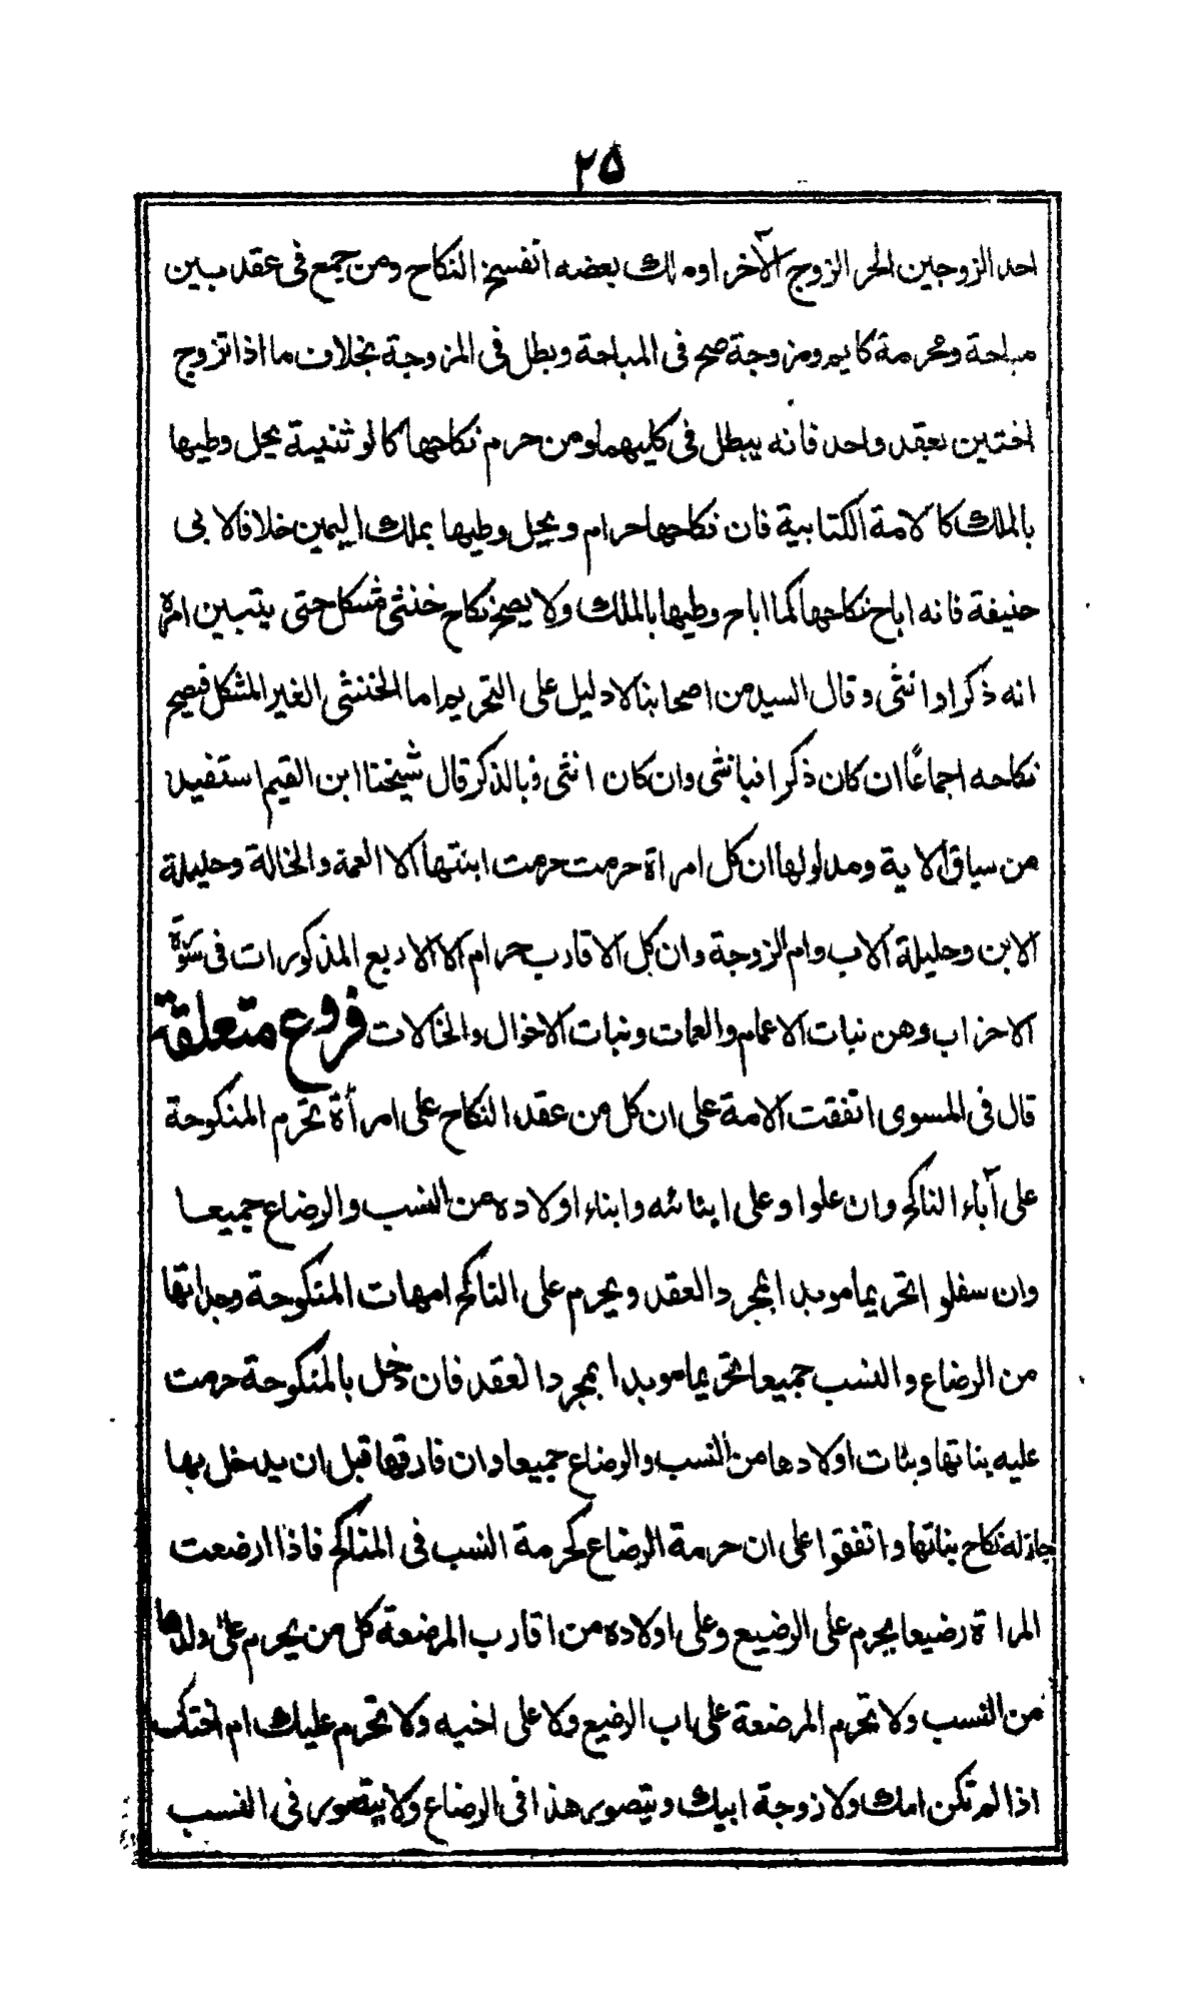 ٢٥
احد الزوجين الحر الزوج الآخر او ملك بعضه انفسخ النكاح ومن جمع فى عقد بين
مباحة ومحرمة كايم ومزوجة صح فى المباحة وبطل فى المزوجة بخلاف ما اذا تزوج
اختين بعقد واحد فانه يبطل فى كليهما ومن حرم نكاحها كالوثنية يحل وطيها
بالملك كالامة الكتابية فان نكاحها حرام ويحل وطيها بملك اليمين خلافا لابى
حنيفة فانه اباح نكاحها كما اباح وطيها بالملك ولا يصح نكاح خنثى مشكل حتى يتبين امره
انه ذكر او انثى وقال السيد من اصحابنا لا دليل على التحريم اما الخنثى الغير المشكل فيصح
نكاحه اجماعًا ان كان ذكرا فبانثى وان كان انثى فبالذكر قال شيخنا ابن القيم استفيد
من سياق الاية ومدلولها ان كل امراة حرمت حرمت ابنتها الا العمة والخالة وحليلة
الابن وحليلة الاب وام الزوجة وان كل الاقارب حرام الا الاربع المذكورات فى سورة
الاحزاب وهن بنات الاعمام والعمات وبنات الاخوال والخالات فروع متعلقة
قال فى المسوى اتفقت الامة على ان كل من عقد النكاح على امرأة تحرم المنكوحة
على آباء الناكح وان علوا وعلى ابنائه وابناء اولاده من النسب والرضاع جميعا
وان سفلوا تحريما موبدا بمجرد العقد ويحرم على الناكح امهات المنكوحة وجداتها
من الرضاع والنسب جميعا تحريما موبدا بمجرد العقد فان دخل بالمنكوحة حرمت
عليه بناتها وبنات اولادها من النسب والرضاع جميعا وان فارقها قبل ان يدخل بها
جاز له نكاح بناتها واتفقوا على ان حرمة الرضاع كحرمة النسب فى المناكح فاذا ارضعت
المراة رضيعا يحرم على الرضيع وعلى اولاده من اقارب المرضعة كل من يحرم على ولدها
من النسب ولا تحرم المرضعة على اب الرضيع ولا على اخيه ولا تحرم عليك ام اختك
اذا لم تكن امك ولا زوجة ابيك ويتصور هذا فى الرضاع ولا يتصور فى النسب